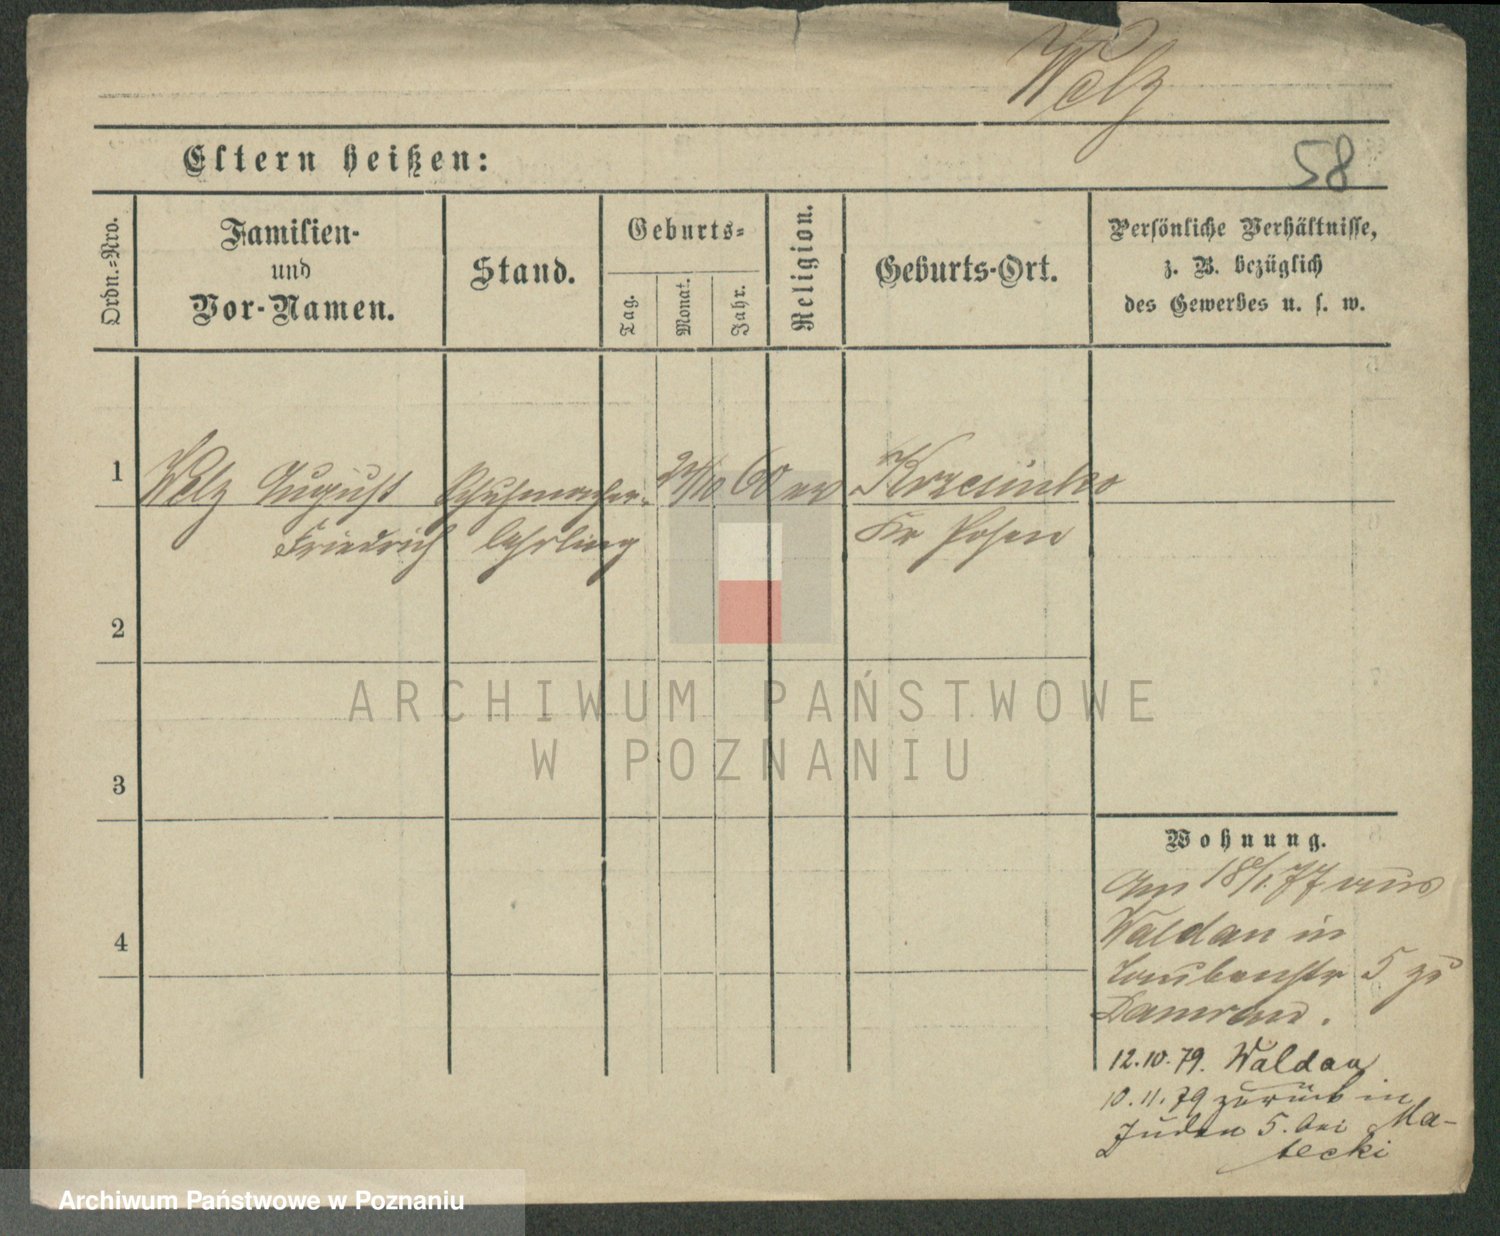 Welz
58
Eltern heißen:
Ordn.-Nro.
Familien-
und
Vor-Namen.
Stand.
Geburts-
Tag.
Monat.
Jahr.
Religion.
Geburts-Ort.
Persönliche Verhältnisse,
z. B. bezüglich
des Gewerbes u. s. w.
1
Welz August Schuhmacher- 27/10 60 ev
Friedrich lehrling Kr Posen
2
3
4
Wohnung.
Am 18/1. 77 aus
Waldau in
5 zu
12.10.79. Waldau
10.11.79 zurück in
Juden 5. bei Ma-
tecki
ARCHIWUM PAŃSTWOWE
W POZNANIU
Archiwum Państwowe w Poznaniu